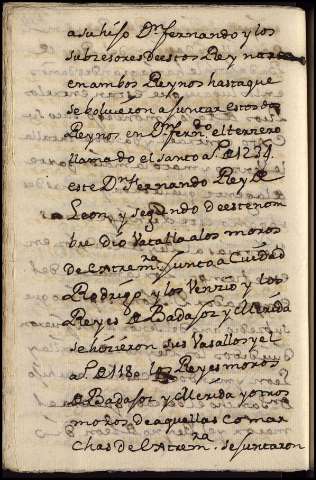 a su hijo Dn fernando y los
subcesores de estos Reynaron
en ambos Reynos hasta que
se bolvieron a juntar estos dos
Reynos en Dn fern.do el terzero
llamado el santo a.s de 1234.
este Dn Fernando Rey de
Leon, y segundo de este nom
bre dio Vatalla a los moros
de Extrem.ra junto a Ciudad
Rodrigo, y los Venzio y los
Reyes de Badajoz y Merida
se hizieron sus Vasallos y el
a.s de 1180 los Reyes moros
de Badajoz y Merida y otros
moros de aquellas comar
chas de Extrem.ra se juntaron